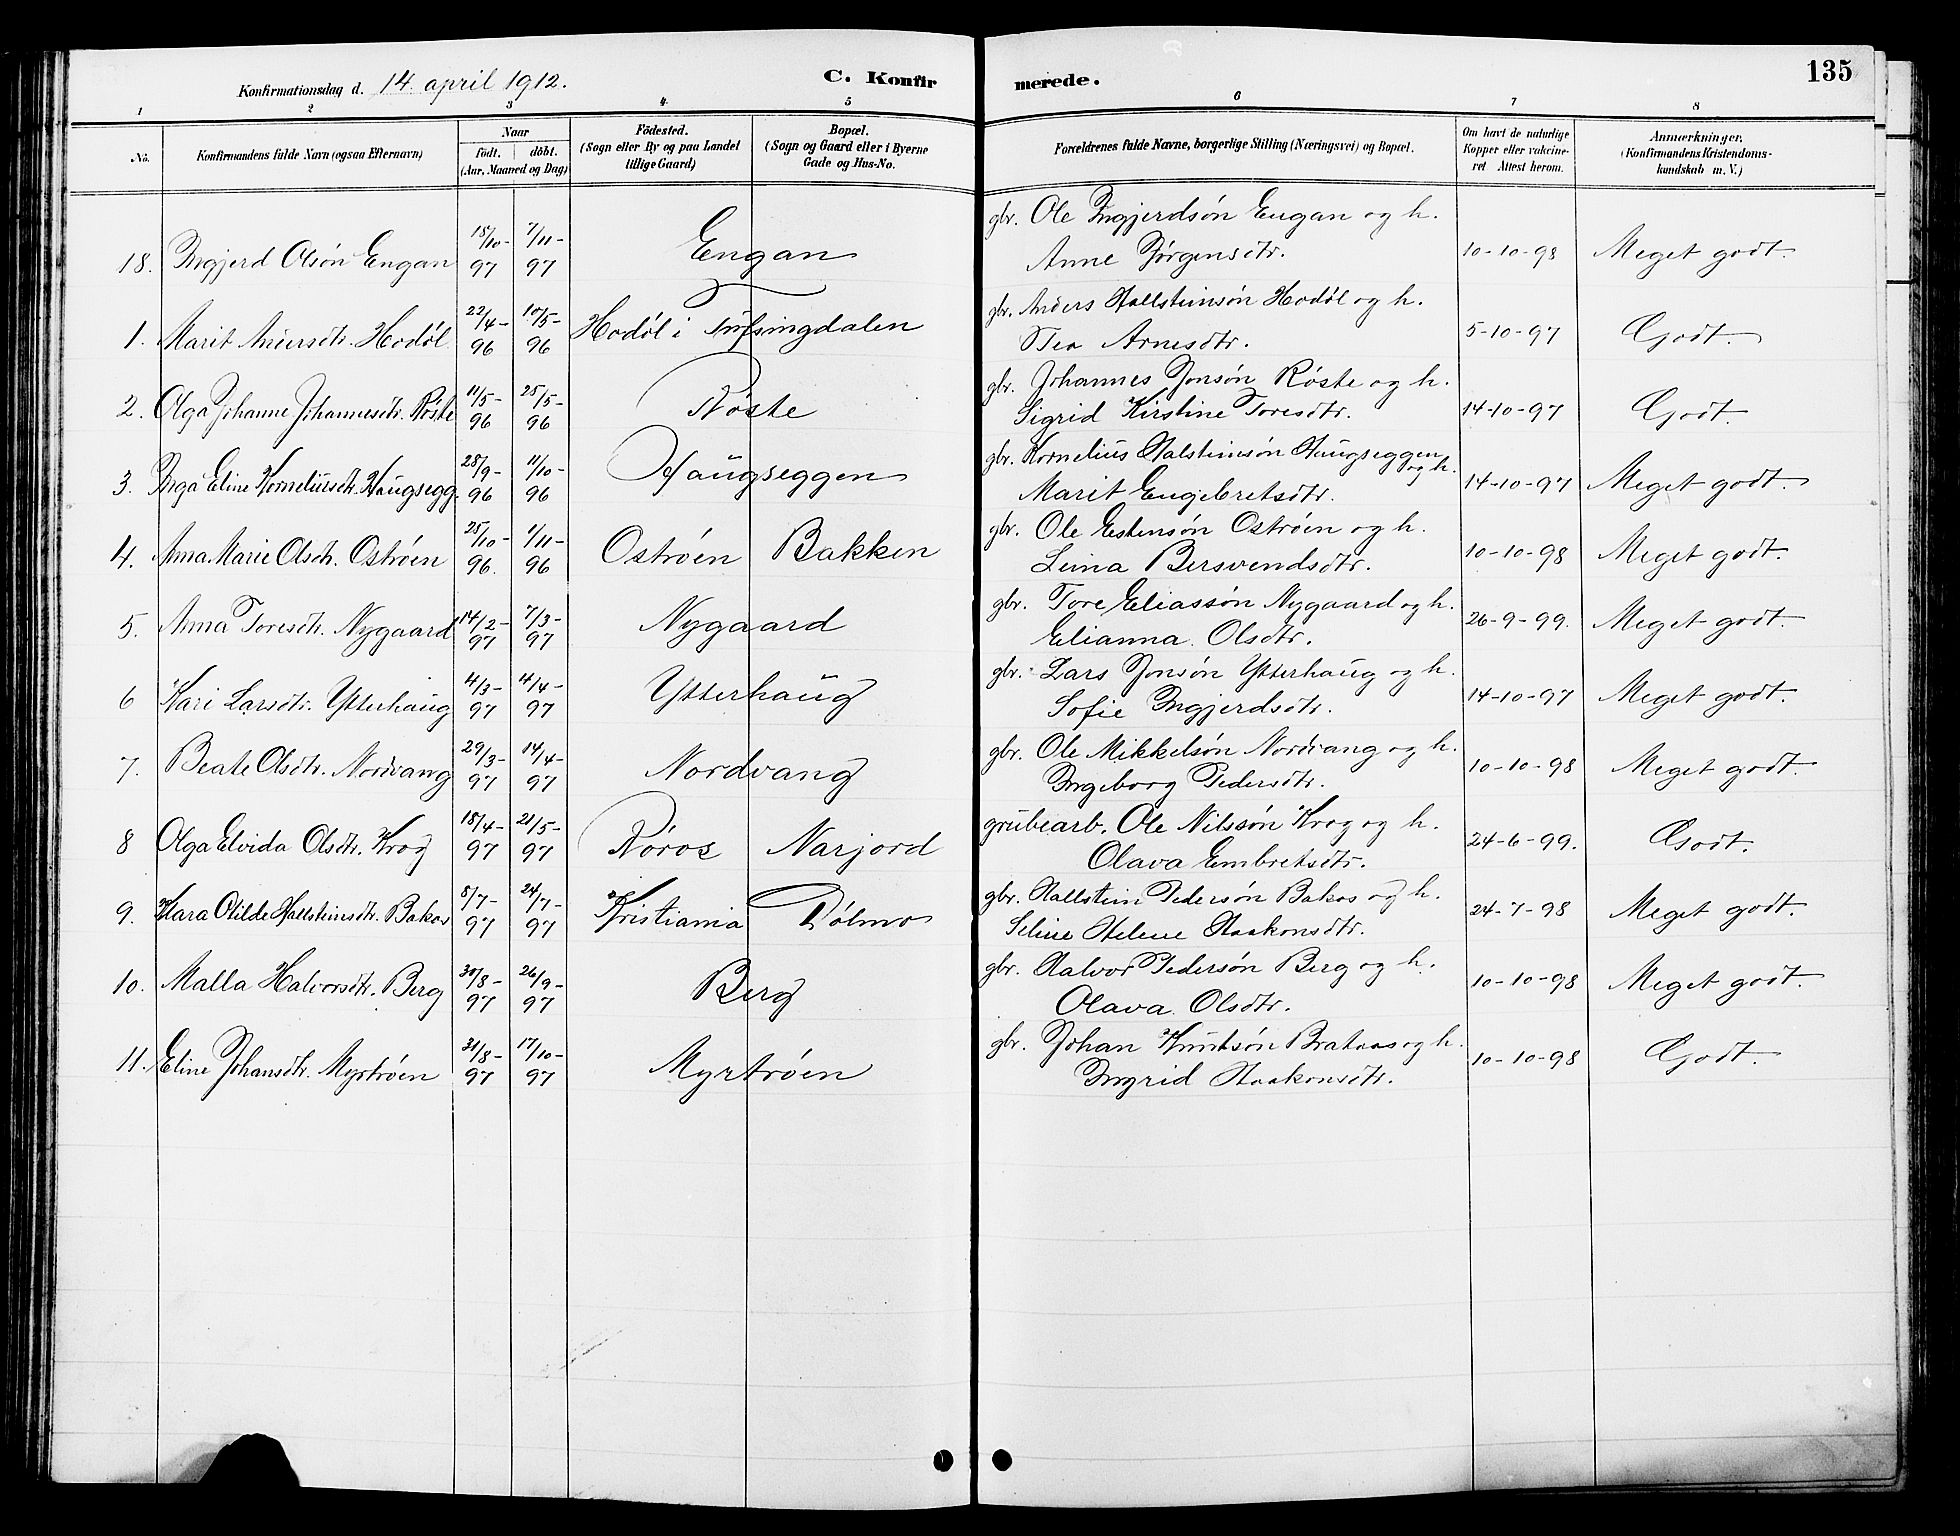 Konfirmationsdag d. 14. april 1912.
C. Konfir
merede.
135
1 2 3 4 5 6 7 8
No.
Konfirmandens fulde Navn (ogsaa Efternavn)
Naar
født. døbt.
(Aar, Maaned og Dag)
Födested.
(Sogn eller By og paa Landet
tillige Gaard)
Bopæl.
(Sogn og Gaard eller i Byerne
Gade og Hus-No.
Forældrenes fulde Navne, borgerlige Stilling (Næringsvei) og Bopæl.
Om havt de naturlige
Kopper eller vakcine-
ret Attest herom.
Anmærkninger,
(Konfirmandens Kristendoms-
kundskab m. V.)
18. Ingjerd Olsön Engan 15/10-97 7/11-97 Engan gbr. Ole Ingjerdsön Engan og h.
Anne Jörgensdtr. 10-10-98 Meget godt.
1. Marit Andersdtr. Hodöl 22/4-96 10/5-96 Hodöl i Tufsingdalen gbr. Anders Hallsteinsön Hodöl og h.
Tea Arnesdtr. 5-10-97 Godt.
2. Olga Johanne Johannesdtr. Röste 11/5-96 25/5-96 Röste gbr. Johannes Jonsön Röste og h.
Sigrid Kirstine Toresdtr. 14-10-97 Godt.
3. Inga Eline Korneliusdtr. Haugsegg. 28/9-96 11/10-96 Haugseggen gbr. Kornelius Halsteinsön Haugseggen og h.
Marit Engebretsdtr. 14-10-97 Meget godt.
4. Anna Marie Olsdtr. Oströen 25/10-96. 1/11-96 Oströen Bakken gbr. Ole Estensön Oströen og h.
Lina Bersvendsdtr. 10-10-98 Meget godt.
5. Anna Toresdtr. Nygaard 14/2-97 7/3-97 Nygaard gbr. Tore Eliassön Nygaard og h.
Elianna Olsdtr. 26-9-99. Meget godt.
6 Kari Larsdtr. Ytterhaug 4/3-97 4/4-97 Ytterhaug gbr. Lars Jonsön Ytterhaug og h.
Sofie Ingjerdsdtr. 14-10-97 Meget godt.
7. Beate Olsdtr. Nordvang 29/3-97 14/4-97 Nordvang gbr. Ole Mikkelsön Nordvang og h.
Ingeborg Pedersdtr. 10-10-98 Meget godt.
8 Olga Elvida Olsdtr. Krog 18/4-97 21/5-97 Röros Narjord grubearb. Ole Nilssön Krog og h.
Olava Embretsdtr. 24-6-99. Godt.
9. Klara Otilde Hallsteinsdtr. Bakos 8/7-97 24/7-97 Kristiania Dölmo gbr. Hallstein Pedersön Bakos og h.
Seline Helene Haakonsdtr. 24-7-98 Meget godt.
10. Malla Halvorsdtr. Berg 30/8-97 26/9-97 Berg gbr. Halvor Pedersön Berg og h.
Olava Olsdtr. 10-10-98 Meget godt.
11. Eline Johansdtr. Myrtröen 31/8-97 17/10-97 Myrtröen gbr. Johan Knutsön Brataas og h.
Ingrid Haakonsdtr. 10-10-98 Godt.